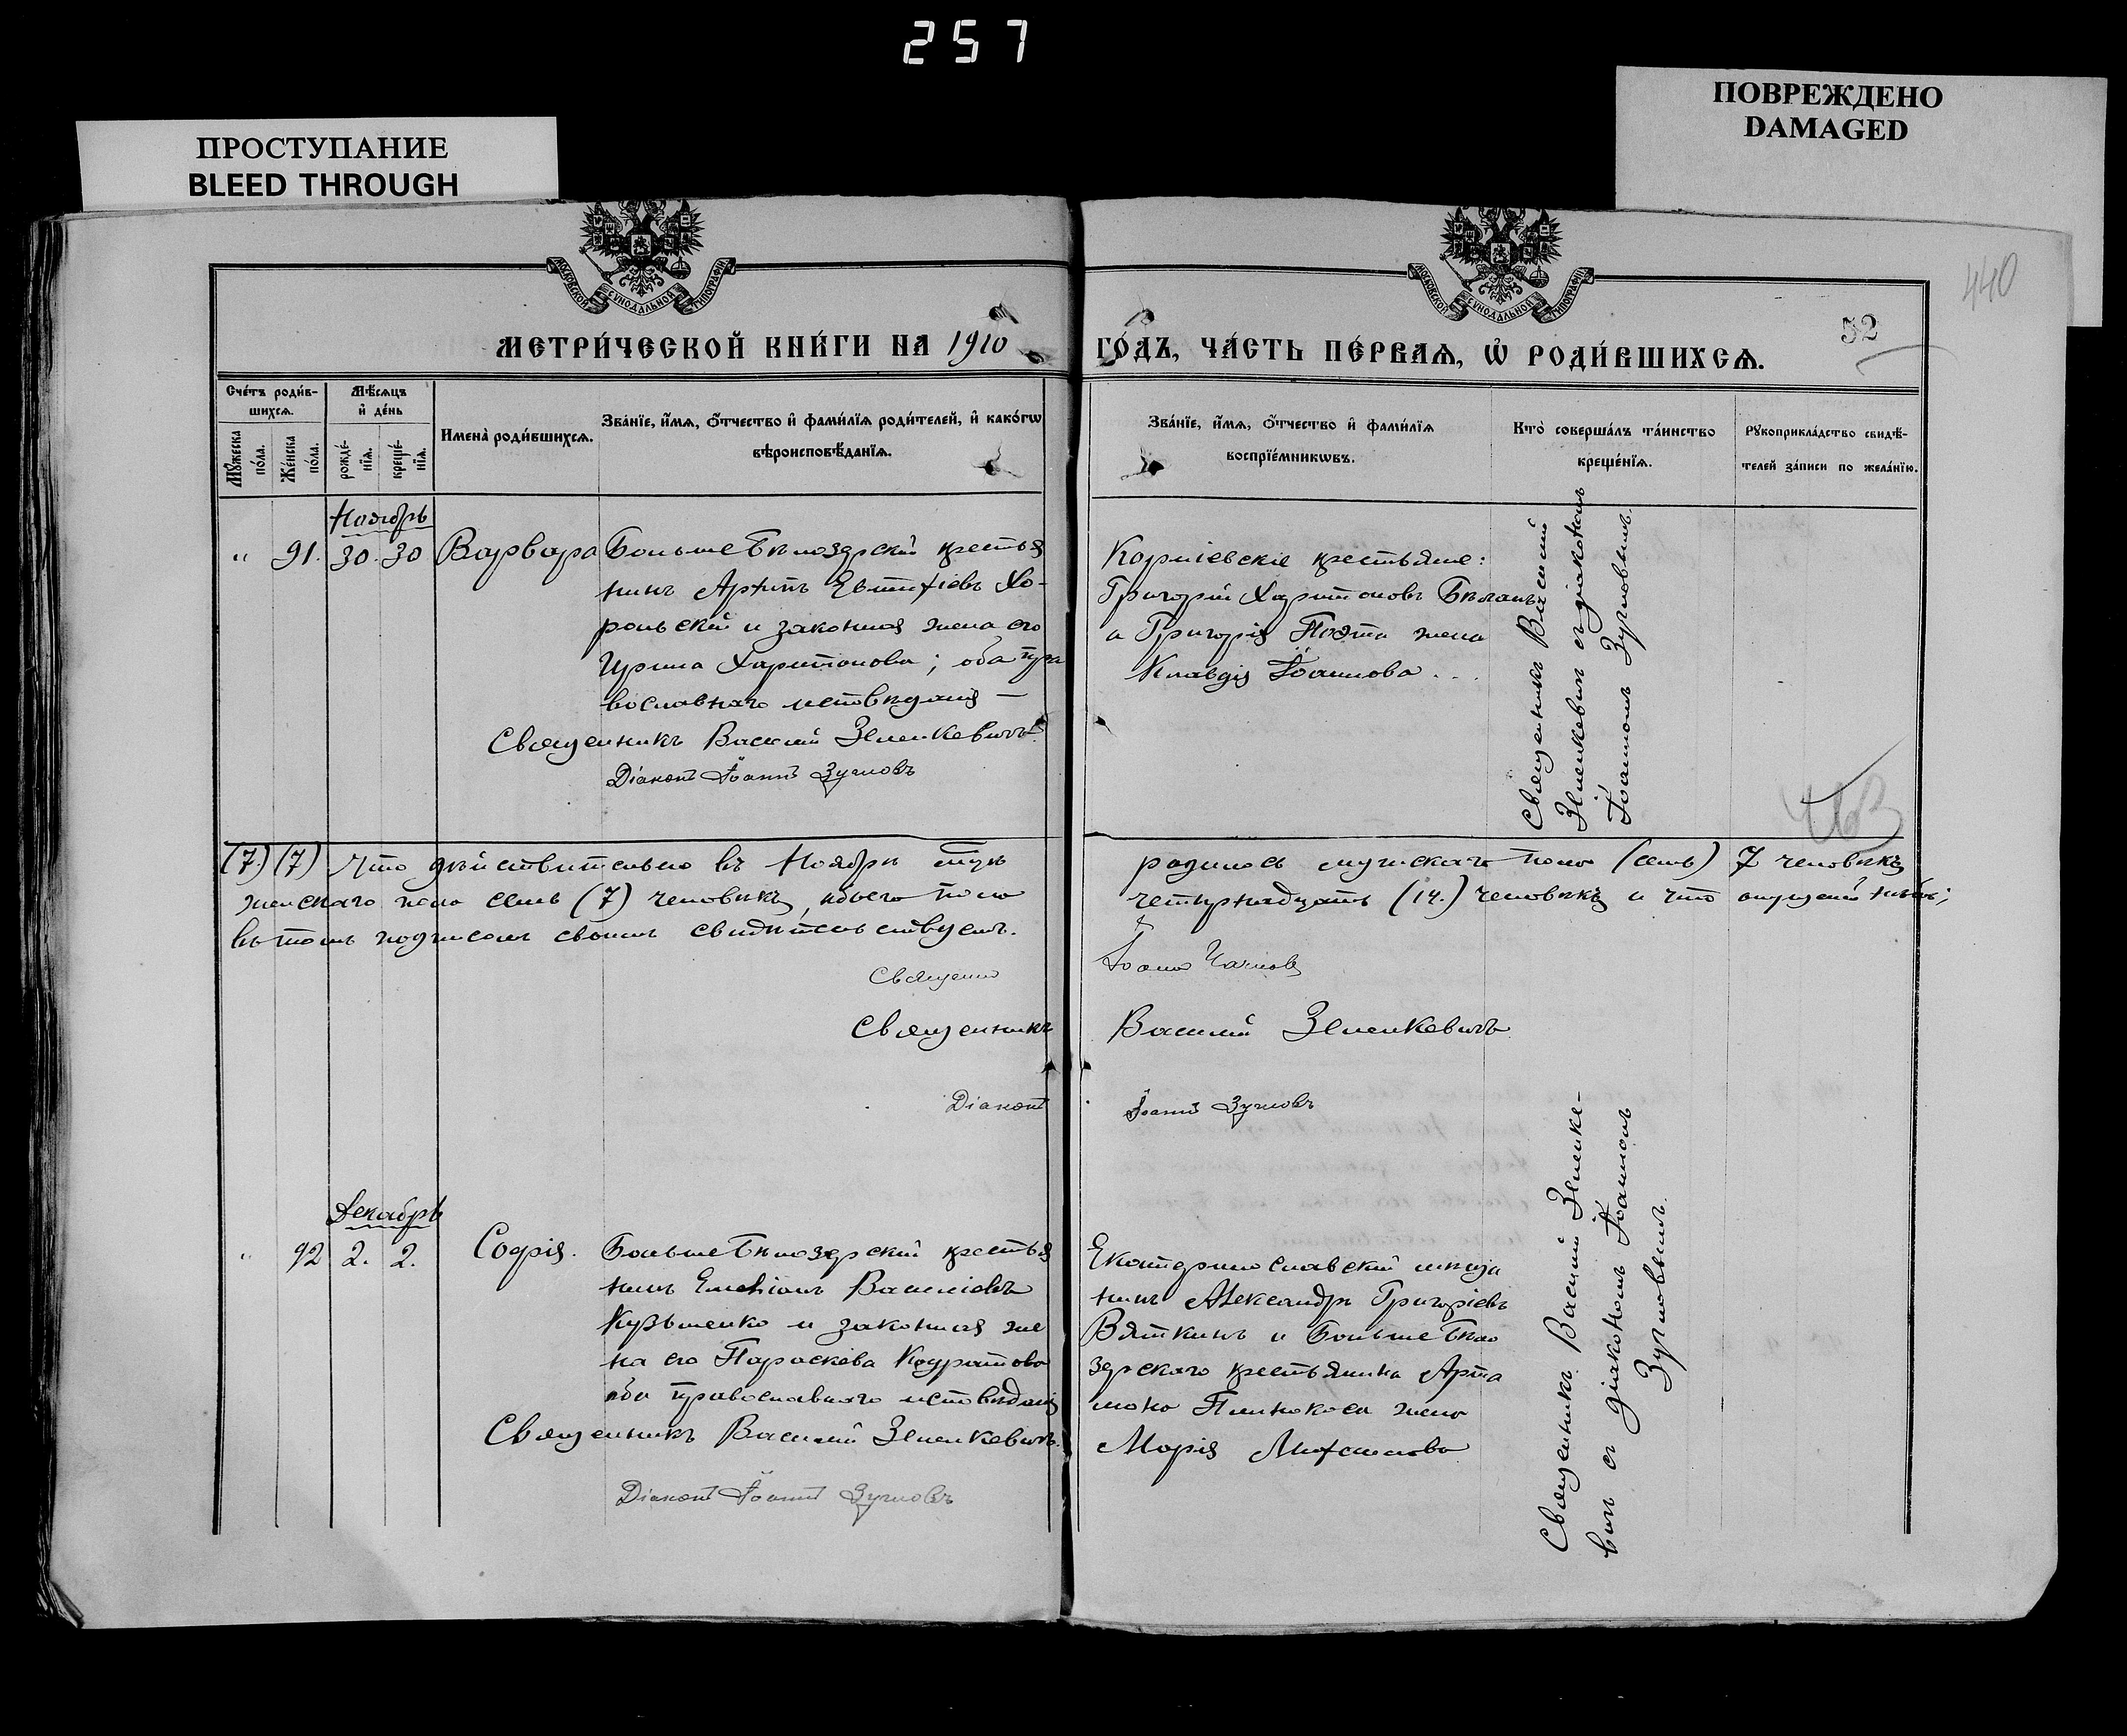 257
ПРОСТУПАНИЕ
BLEED THROUGH
ПОВРЕЖДЕНО
DAMAGED
440
52
МОСКОВСКОЙ СѴНОДАЛЬНОЙ ТИПОГРАФІИ
МОСКОВСКОЙ СѴНОДАЛЬНОЙ ТИПОГРАФІИ
МЕТРИ́ЧЕСКОЙ КНИ́ГИ НА 1910
ГО́ДЪ, ЧА́СТЬ ПЕ́РВАѦ, Ѡ҆ РОДИ́ВШИХСѦ.
Сче́тъ роди́в-
шихсѧ.
Мꙋ́жеска по́ла.
Же́нска по́ла.
Мѣ́сѧцъ
и҆ де́нь
рожде́-
нїѧ.
креще́-
нїѧ.
Имена̀ роди́вшихсѧ.
Зва́нїе, и҆́мѧ, ѻ҆́тчество и҆ фами́лїѧ роди́телей, и҆ како́гѡ
вѣроисповѣ́данїѧ.
Зва́нїе, и҆́мѧ, ѻ҆́тчество и҆ фами́лїѧ
воспрїе́мникѡвъ.
Кто̀ соверша́лъ та́инство
креще́нїѧ.
Рꙋкоприкла́дство свидѣ́-
телей за́писи по жела́нїю.
Ноябрь
" 91. 30. 30 Варвара
Больше Бѣлозерскій крестья
нинъ Архипъ Евтихіевъ Хо-
рольскій и законная жена его
Ирина Харитонова; оба пра
вославнаго исповѣданія —
Священникъ Василій Зеленкевичъ
Діаконъ Іоаннъ Зугловъ
Григорій Харитоновъ Бѣланъ
и Григорія жена
Клавдія Іоаннова
Священникъ Василій
Зеленкевичъ съ діакономъ
Іоанномъ Зугловымъ.
(7.) (7) Что дѣйствительно въ Ноябрѣ м-цѣ
родилось мужскаго пола (семь) 7 человѣкъ
женскаго пола семь (7) человѣкъ, обоего пола
четырнадцать (14.) человѣкъ и что опущеній нѣтъ;
въ томъ подписомъ своимъ свидѣтельствуемъ.
Священникъ Василій Зеленкевичъ
Діаконъ Іоаннъ Зугловъ
Декабрь
" 92 2. 2. Софія.
Больше Бѣлозерскій крестья
нинъ Емеліанъ Василіевъ
Кузьменко и законная же
на его Параскева Кодратова
оба православнаго исповѣданія
Священникъ Василій Зеленкевичъ.
Діаконъ Іоаннъ Зугловъ
Екатеринославскій мѣща
нинъ Александръ Григоріевъ
Вяткинъ и Больше Бѣло
зерскаго крестьянина Арта
мона жена
Марія
Священникъ Василій Зеленке-
вичъ съ діакономъ Іоанномъ
Зугловымъ.